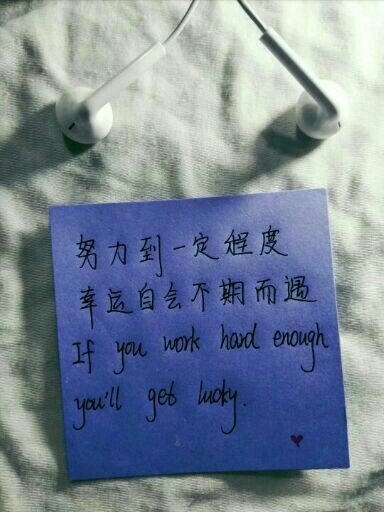 努力到一定程度
幸运自会不期而遇
If you work hard enough
you'll get lucky.